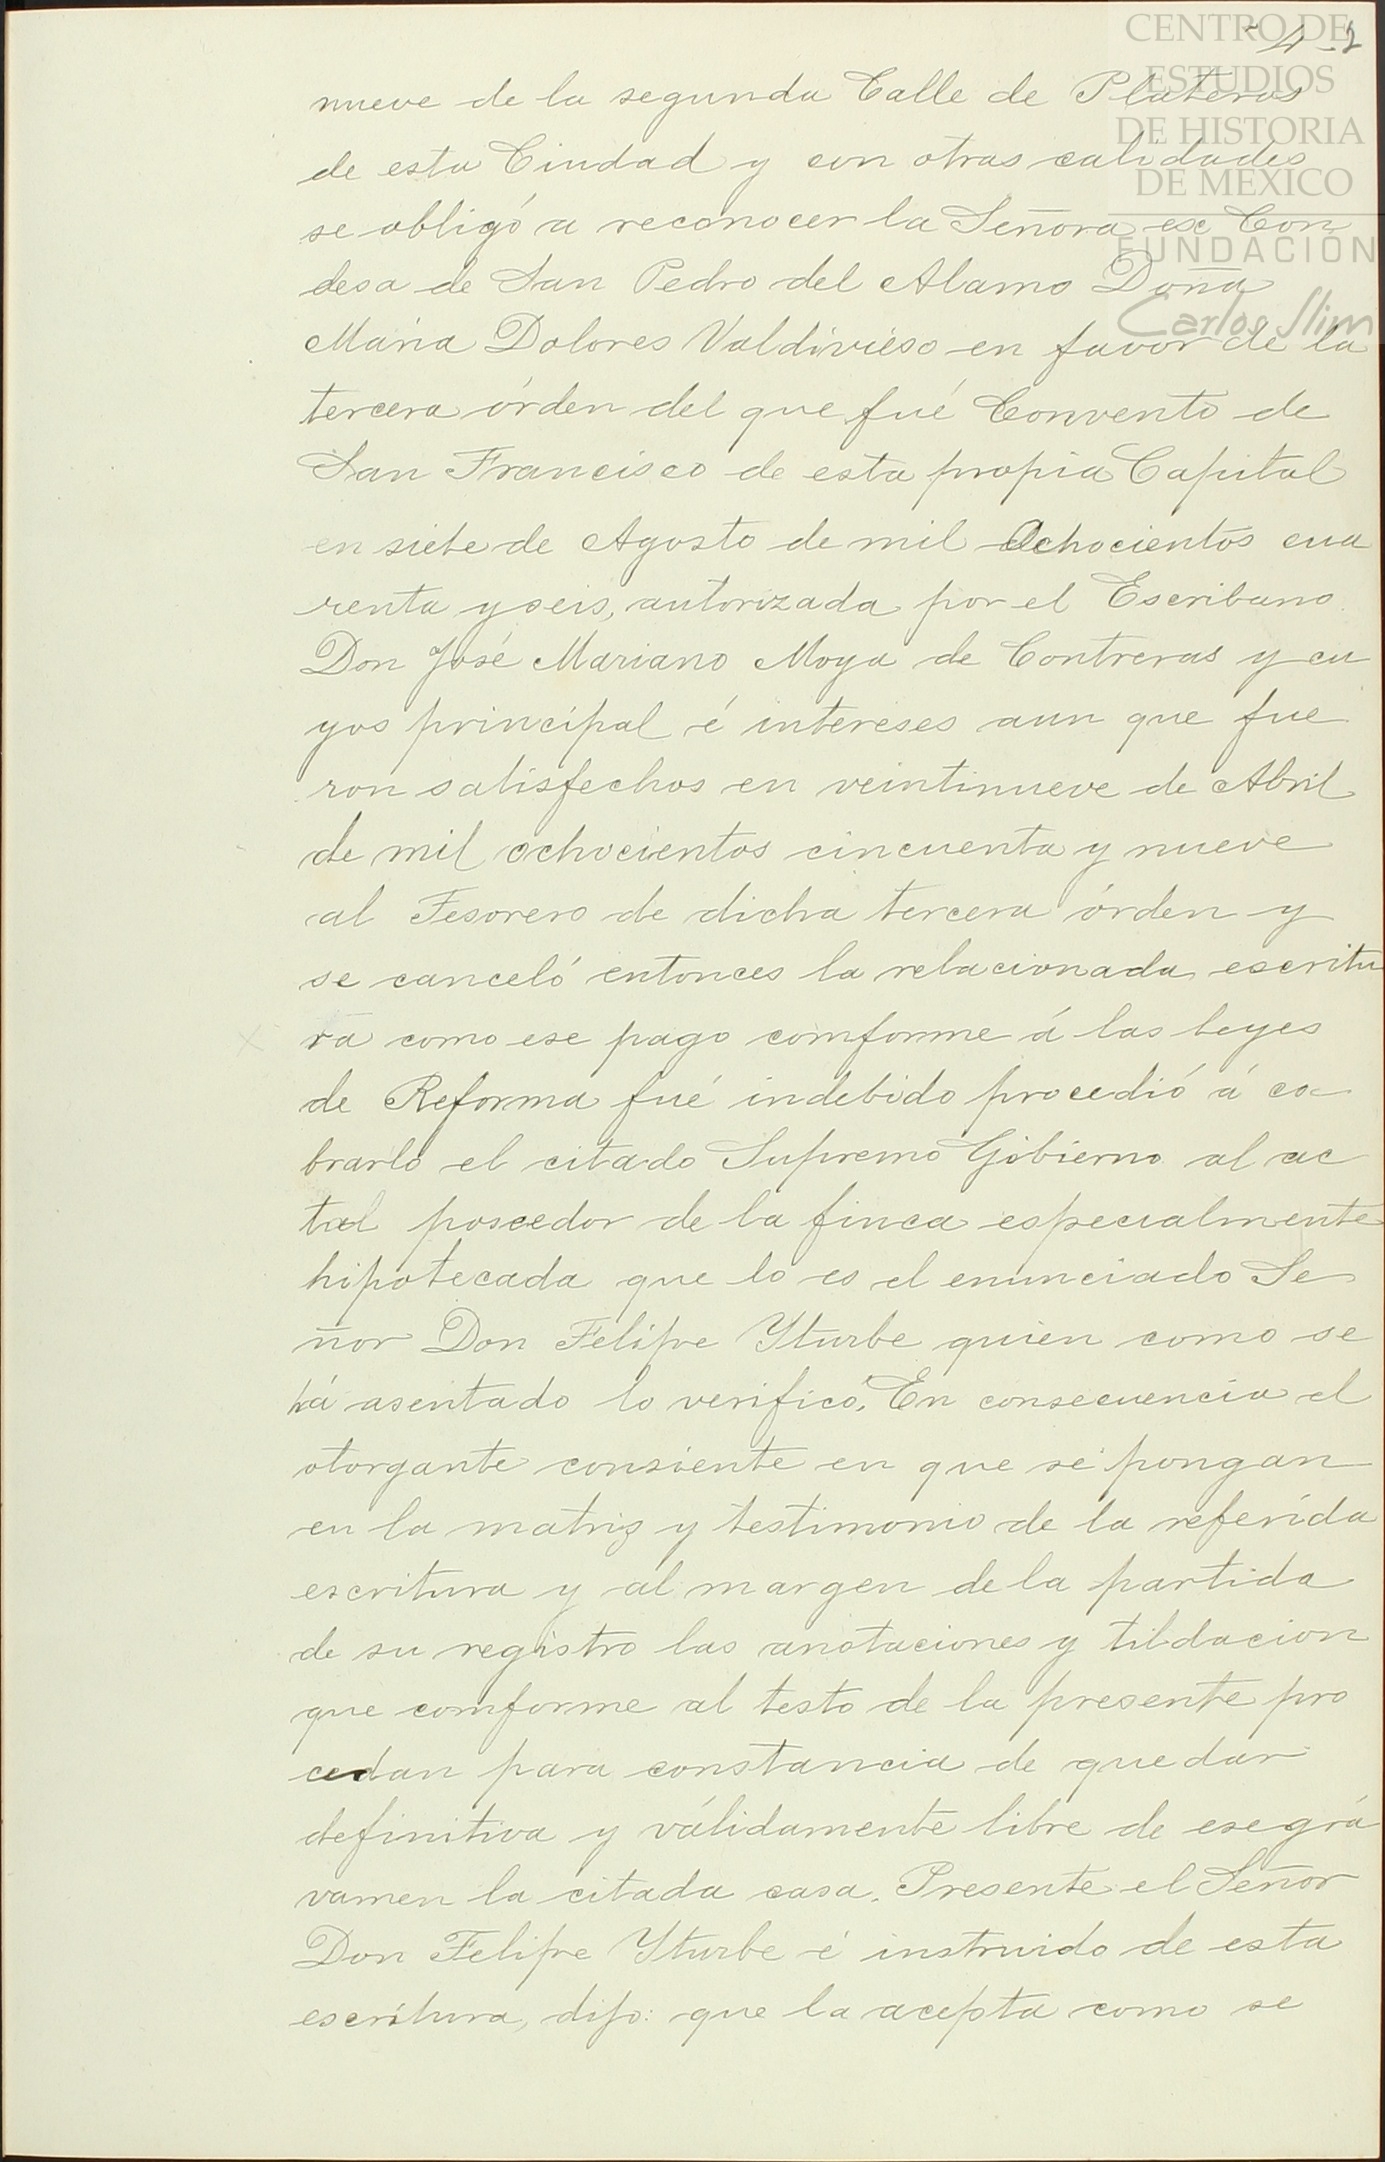 CENTRO DE
ESTUDIOS
DE HISTORIA
DE MEXICO
FUNDACIÓN
Carlos Slim
nueve de la segunda Calle de Plateros
de esta Ciudad y con otras calidades
se obligó a reconocer la Señora ex Con
desa de San Pedro del Alamo Doña
Maria Dolores Valdivieso en favor de la
tercera órden del que fué Convento de
San Francisco de esta propia Capital
en siete de Agosto de mil ochocientos cua
renta y seis, autorizada por el Escribano
Don José Mariano Moya de Contreras y cu
yos principal é intereses aun que fue
ron satisfechos en veintinueve de Abril
de mil ochocientos cincuenta y nueve
al Tesorero de dicha tercera órden y
se canceló entonces la relacionada escritu
ra como ese pago comforme á las leyes
de Reforma fué indebido procedió á co-
brarlo el citado Supremo Gobierno al ac
tual poseedor de la finca especialmente
hipotecada que lo es el enunciado Se
ñor Don Felipe Yturbe quien como se
há asentado lo verificó. En consecuencia el
otorgante consiente en que se pongan
en la matriz y testimonio de la referida
escritura y al margen de la partida
de su registro las anotaciones y tildacion
que comforme al testo de la presente pro
cedan para constancia de quedar
definitiva y válidamente libre de ese grá
vamen la citada casa. Presente el Señor
Don Felipe Yturbe é instruido de esta
escritura, dijo: que la acepta como se